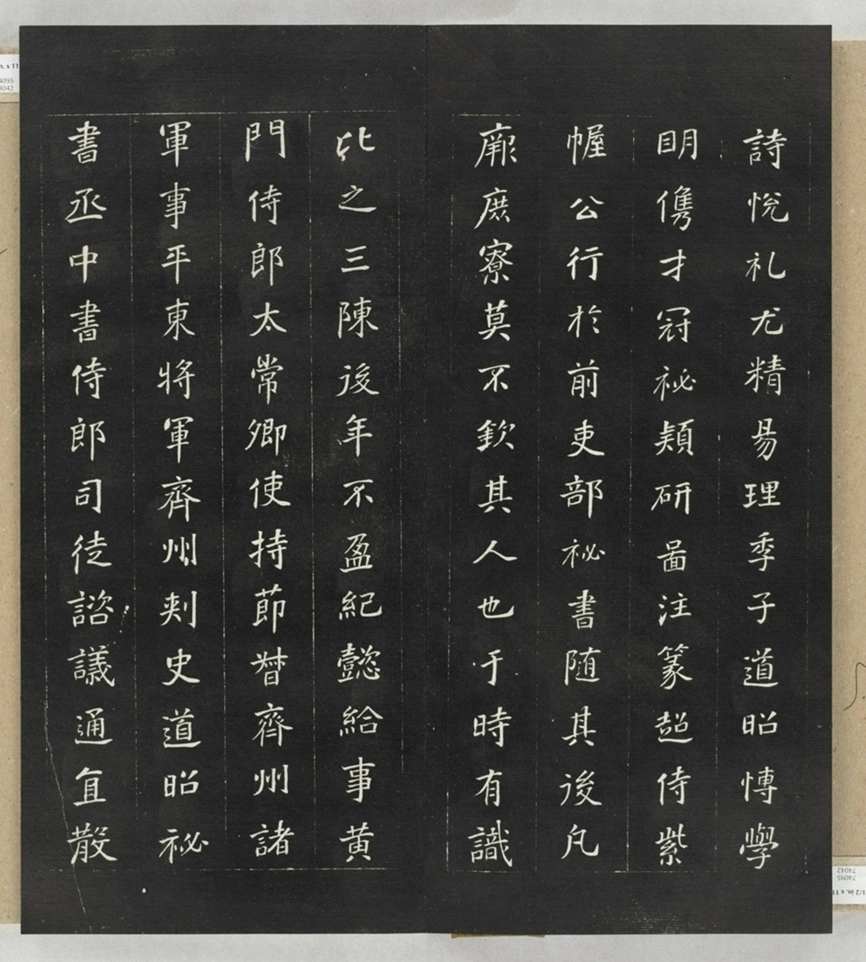 詩悅礼尤精易理季子道昭慱學
眀儁才冠祕穎研啚注篆超侍紫
幄公行於前吏部祕書随其後凡
厥庶寮莫不欽其人也于時有識
比之三陳後年不盈紀懿給事黄
門侍郎太常卿使持莭督齊州諸
軍事平東將軍齊州刾史道昭祕
書丞中書侍郎司徒諮議通直散
74095
74042